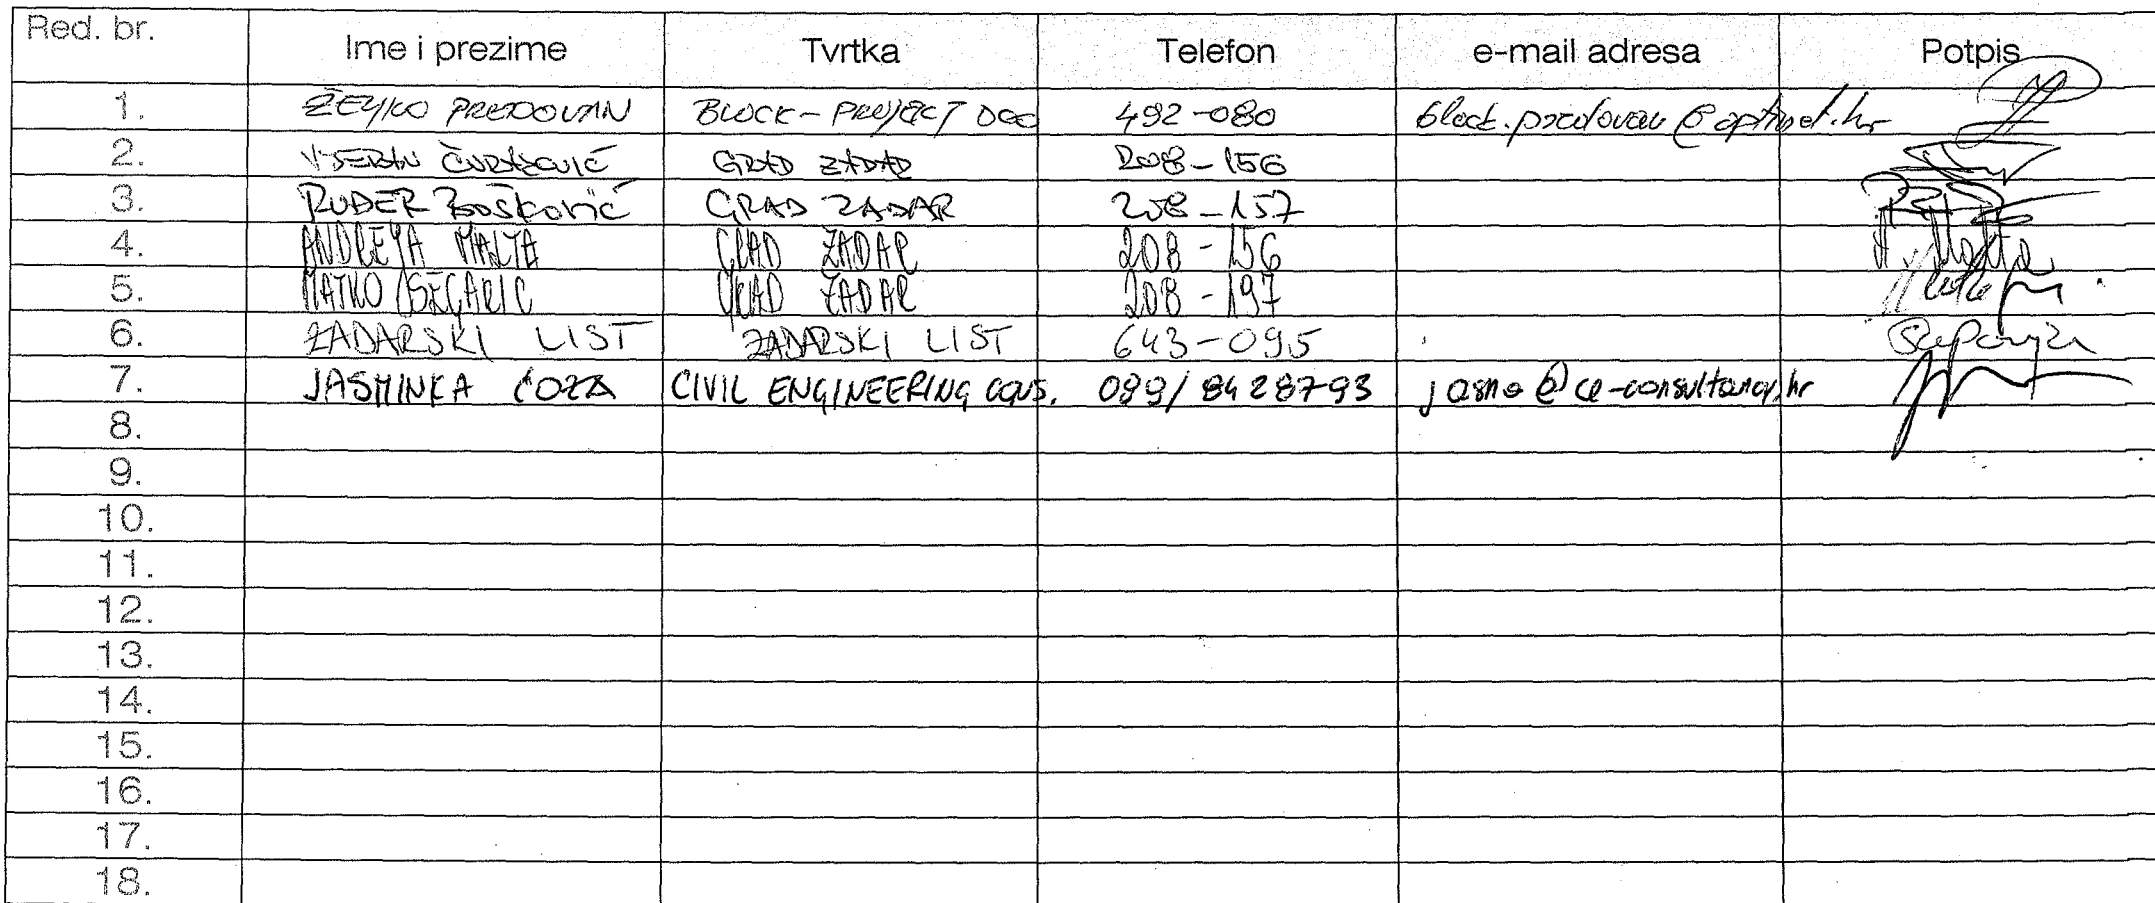 Red. br. Ime i prezime Tvrtka Telefon e-mail adresa Potpis
1. ŽELJKO PREDOVAN BLOCK-PROJEKT DOO 492-080
2. GRAD ZADAR 208-156
3. RUĐER BOŠKOVIĆ GRAD ZADAR 208-157
4. ANDREJA MALTA GRAD ZADAR 208-156
5. MATKO SEGARIĆ GRAD ZADAR 208-197
6. ZADARSKI LIST ZADARSKI LIST 643-095
7. JASMINKA ĆOZA CIVIL ENGINEERING CONS. 099/8428793
8.
9.
10.
11.
12.
13.
14.
15.
16.
17.
18.